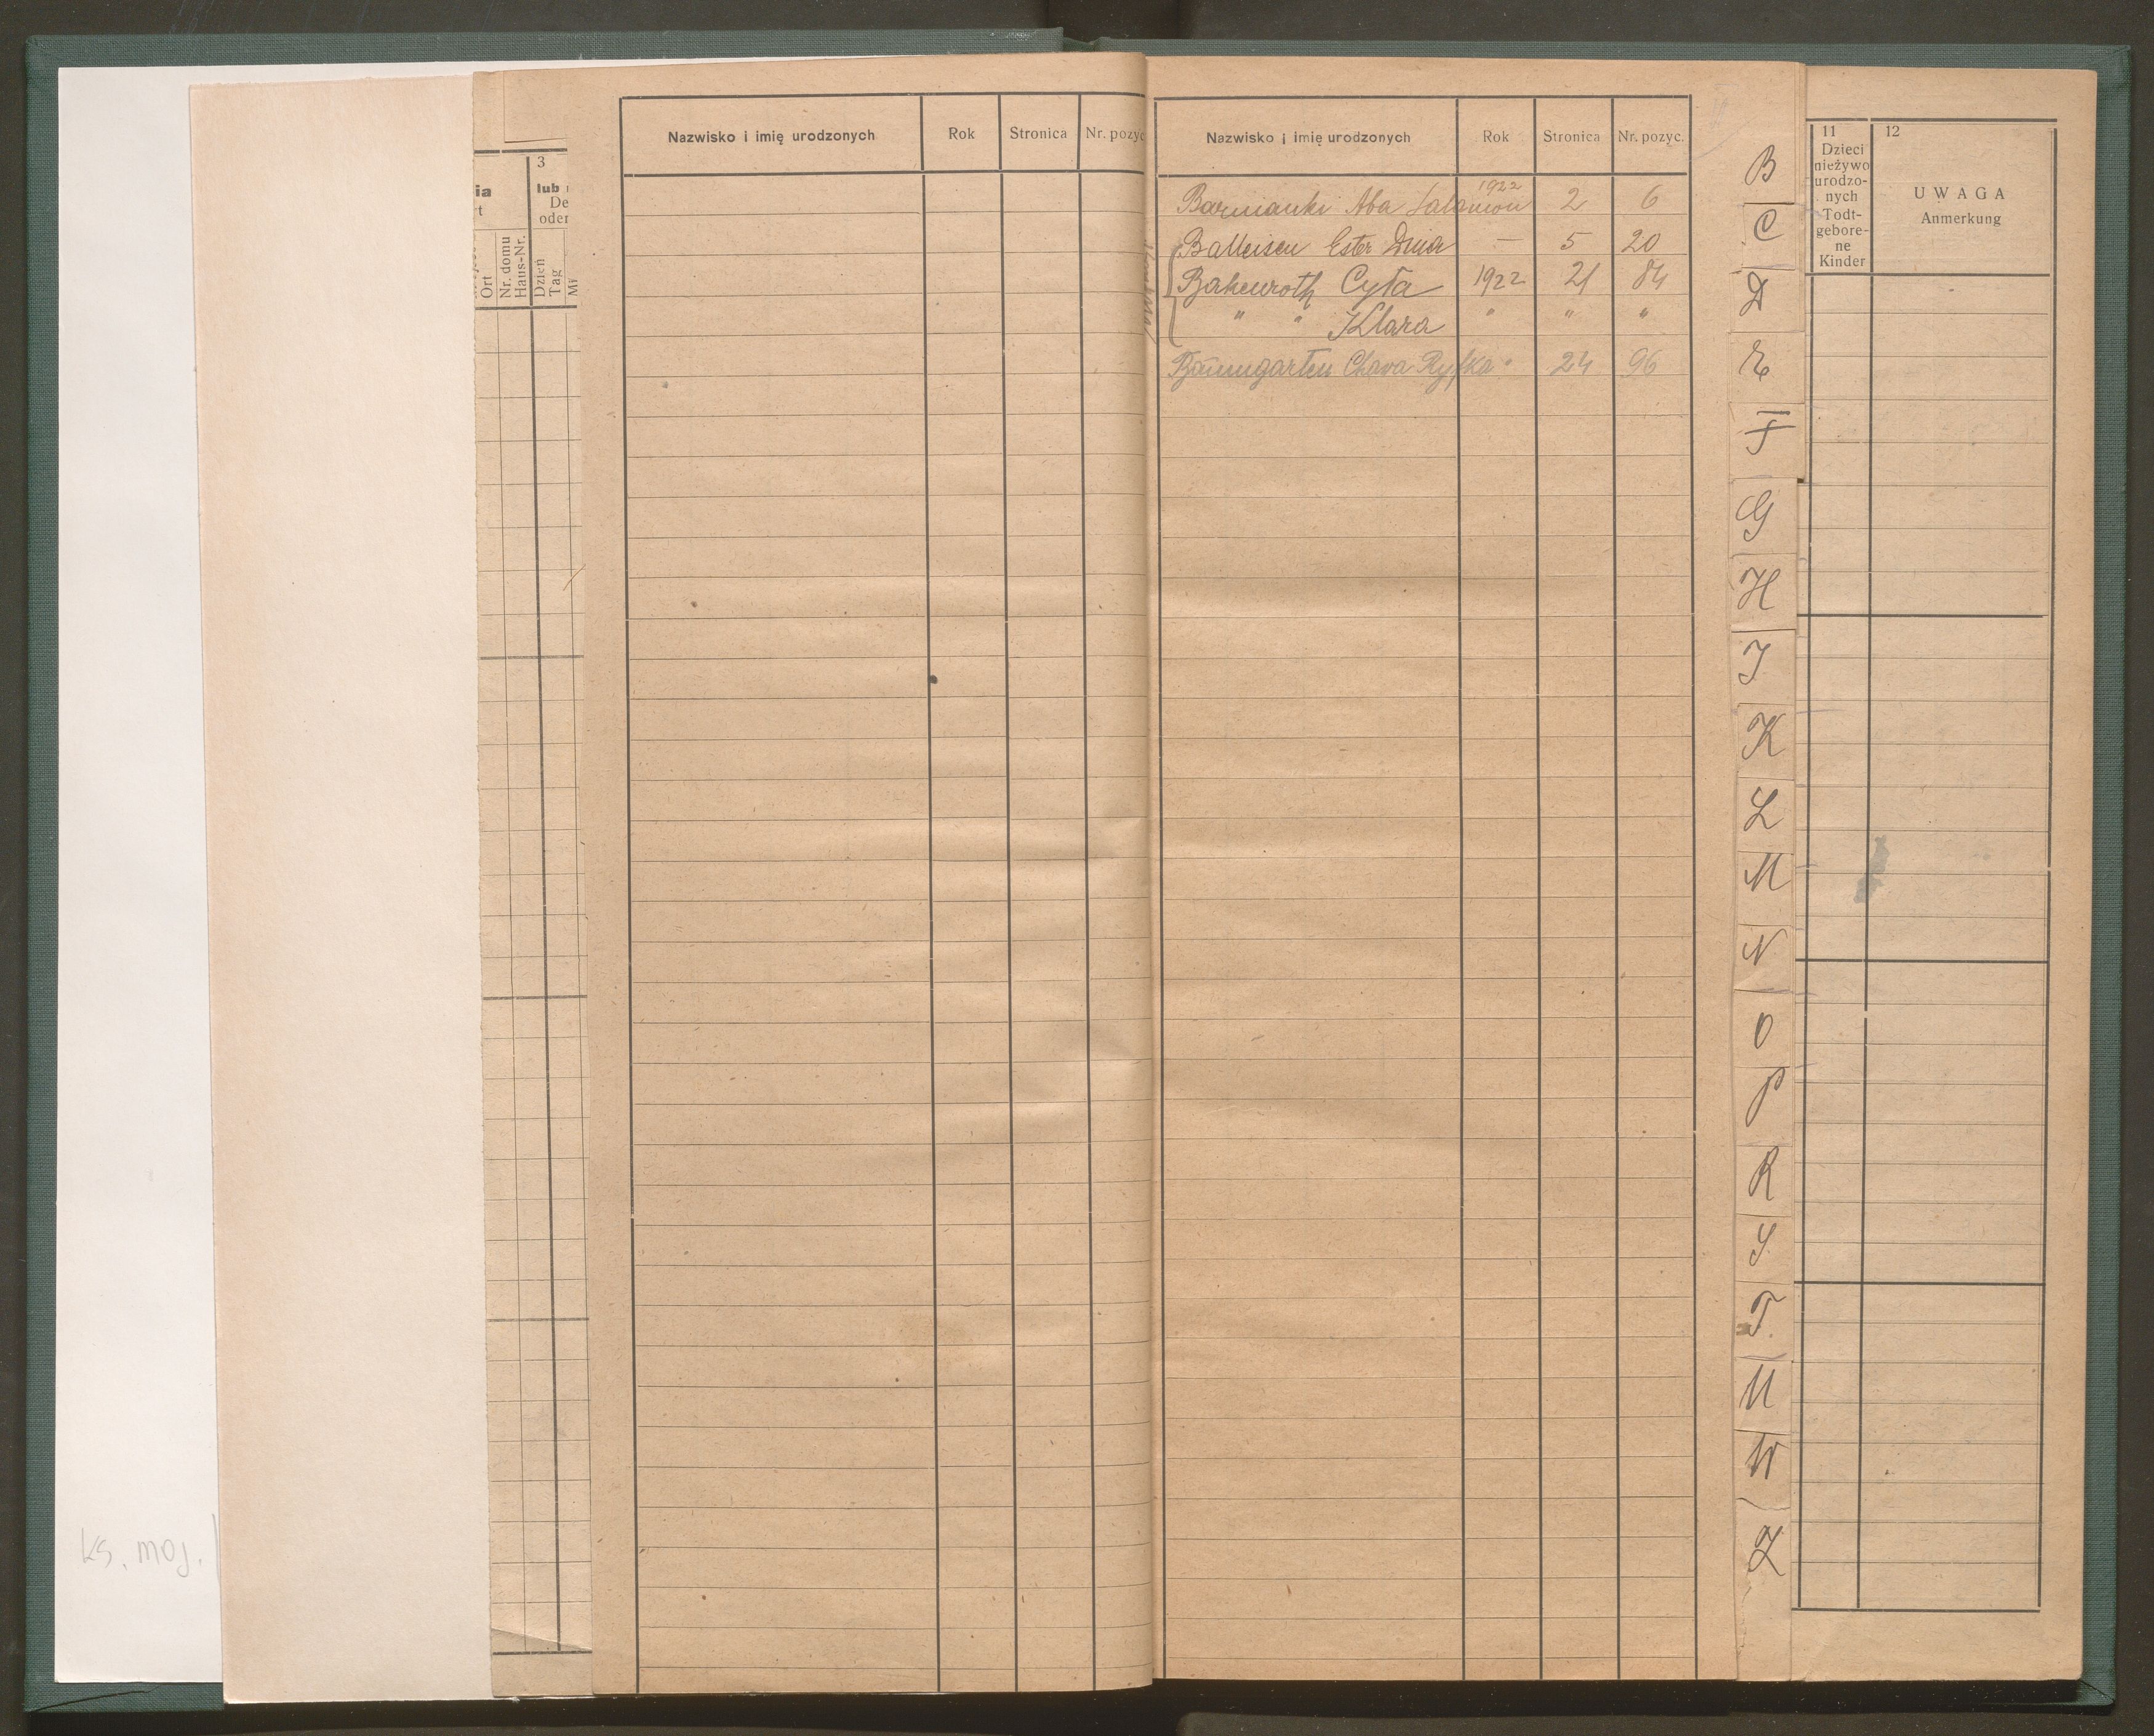 ks. moj.
ia
t
Ort
Nr. domu
Haus-Nr.
3
lub
De
oder
Dzień
Tag
Nazwisko i imię urodzonych Rok Stronica Nr. pozyc
Nazwisko i imię urodzonych Rok Stronica Nr. pozyc.
Aba Salamon 1922 2 6
Ester — 5 20
Cyla 1922 21 84
" " Klara " " "
Baumgarten Chava Ryfka " 24 96
B
C
D
E
F
G
H
I
K
L
M
N
O
P
R
S
T.
U
W
Z
11
Dzieci
nieżywo
urodzo-
nych
Todt-
gebore-
ne
Kinder
12
UWAGA
Anmerkung